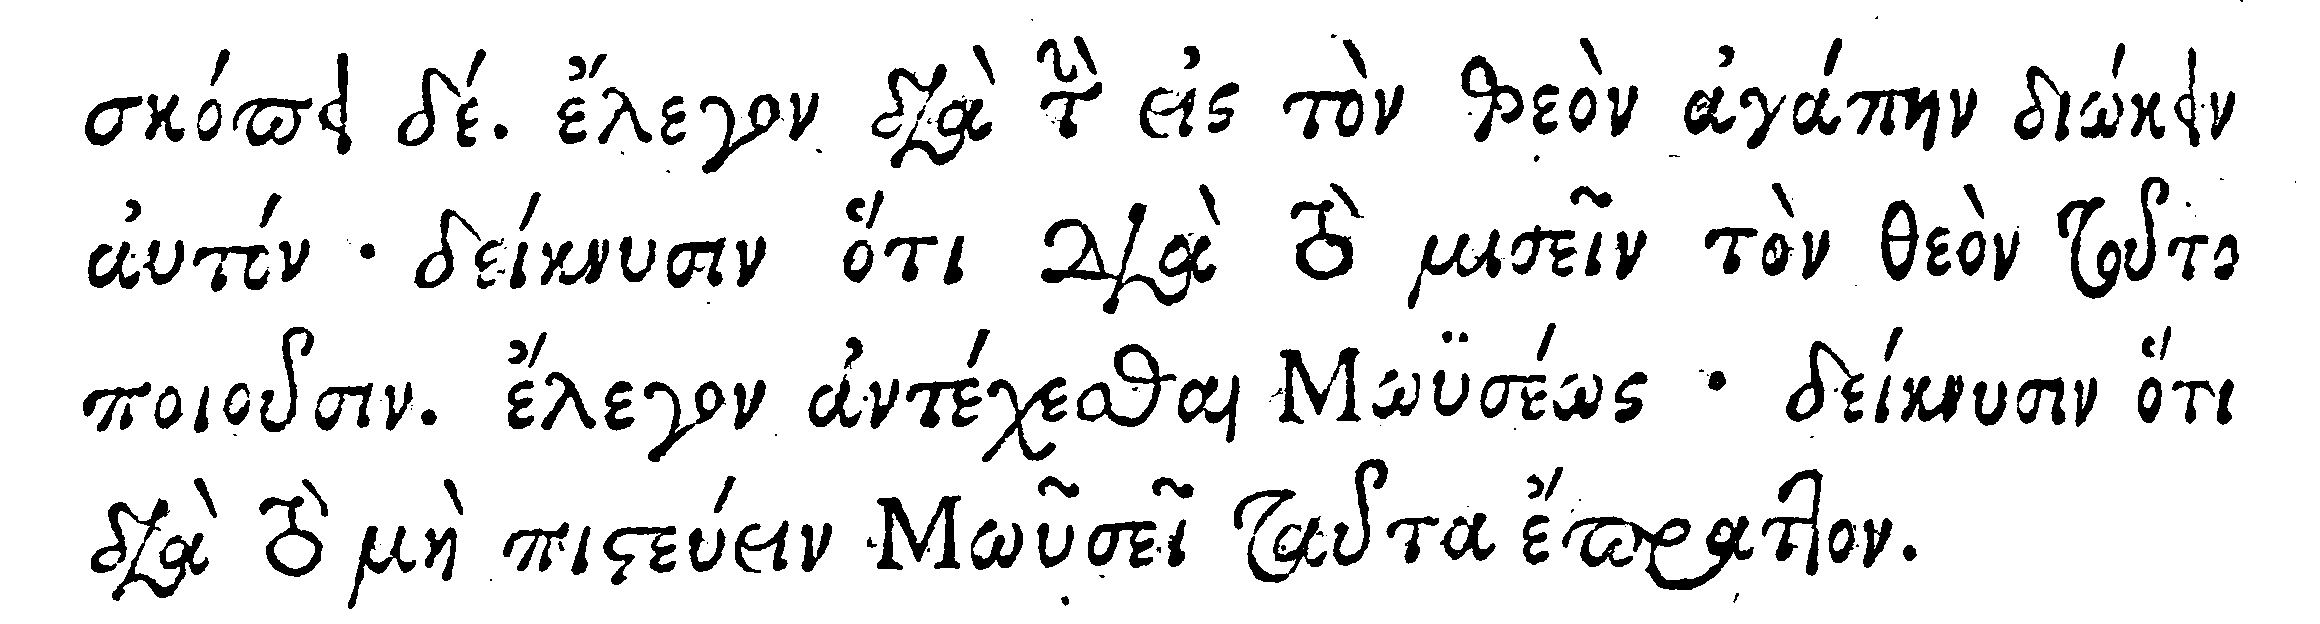 σκόπει δέ. ἔλεγον διὰ τὴν εἰς τὸν θεὸν ἀγάπην διώκειν
αὐτόν · δείκνυσιν ὅτι διὰ τὸ μισεῖν τὸν θεὸν τοῦτο
ποιοῦσιν. ἔλεγον ἀντέχεσθαι Μωϋσέως · δείκνυσιν ὅτι
διὰ τὸ μὴ πιστεύειν Μωϋσεῖ ταῦτα ἔπραττον.